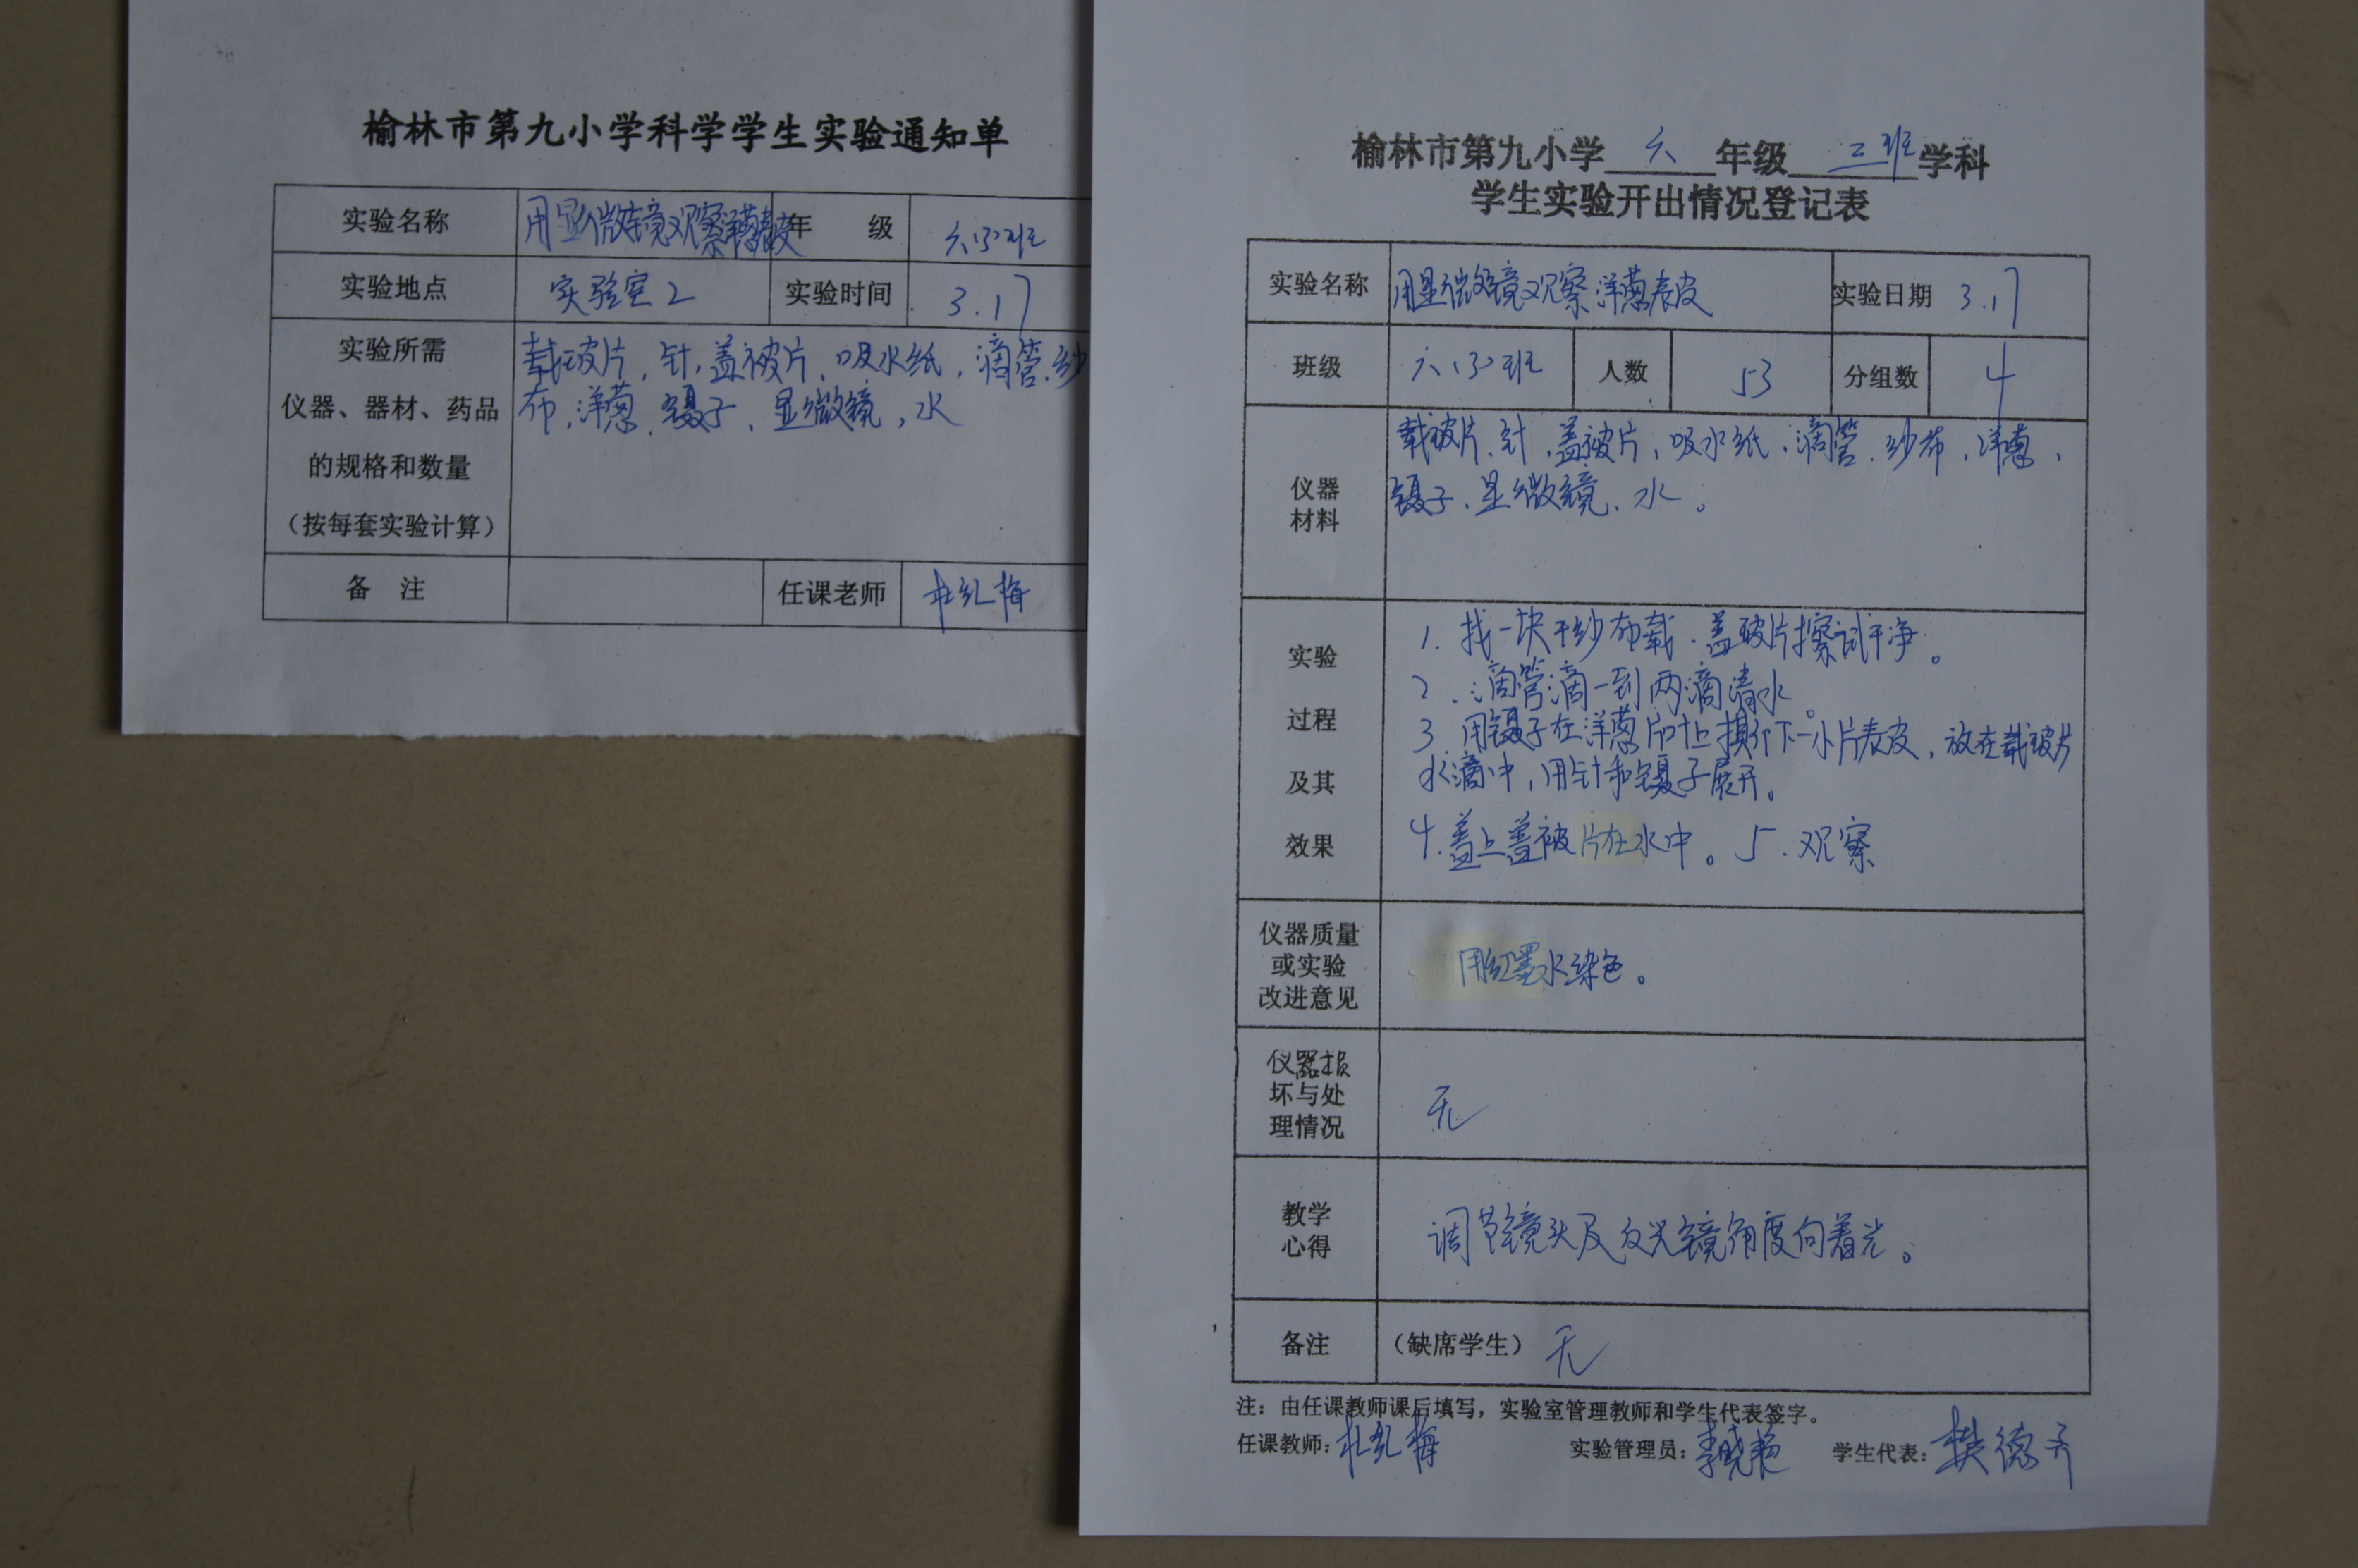 榆林市第九小学科学学生实验通知单
实验名称 用显微镜观察洋葱表皮 年 级 六(3)班
实验地点 实验室2 实验时间 3.17
实验所需
仪器、器材、药品
的规格和数量
(按每套实验计算)
载玻片,针,盖被片,吸水纸,滴管.纱
布,洋葱.镊子.显微镜,水
备 注 任课老师 杜红梅
榆林市第九小学 六 年级 三班 学科
学生实验开出情况登记表
实验名称 用显微镜观察洋葱表皮 实验日期 3.17
班级 六(3)班 人数 53 分组数 4
仪器
材料
载被片.针.盖被片,吸水纸.滴管.纱布,洋葱,
镊子.显微镜.水。
实验
过程
及其
效果
1. 找一块干纱布载.盖玻片擦试干净。
2. 滴管滴一到两滴清水。
3 用镊子在洋葱片上撕下一小片表皮,放在载玻片
水滴中,用针和镊子展开。
4.盖上盖被片在水中。5.观察
仪器质量
或实验
改进意见
用红墨水染色。
仪器损
坏与处
理情况
无
教学
心得
调节镜头及反光镜角度向着光。
备注 (缺席学生) 无
注:由任课教师课后填写,实验室管理教师和学生代表签字。
任课教师:杜红梅 实验管理员:李晓艳 学生代表:樊德齐